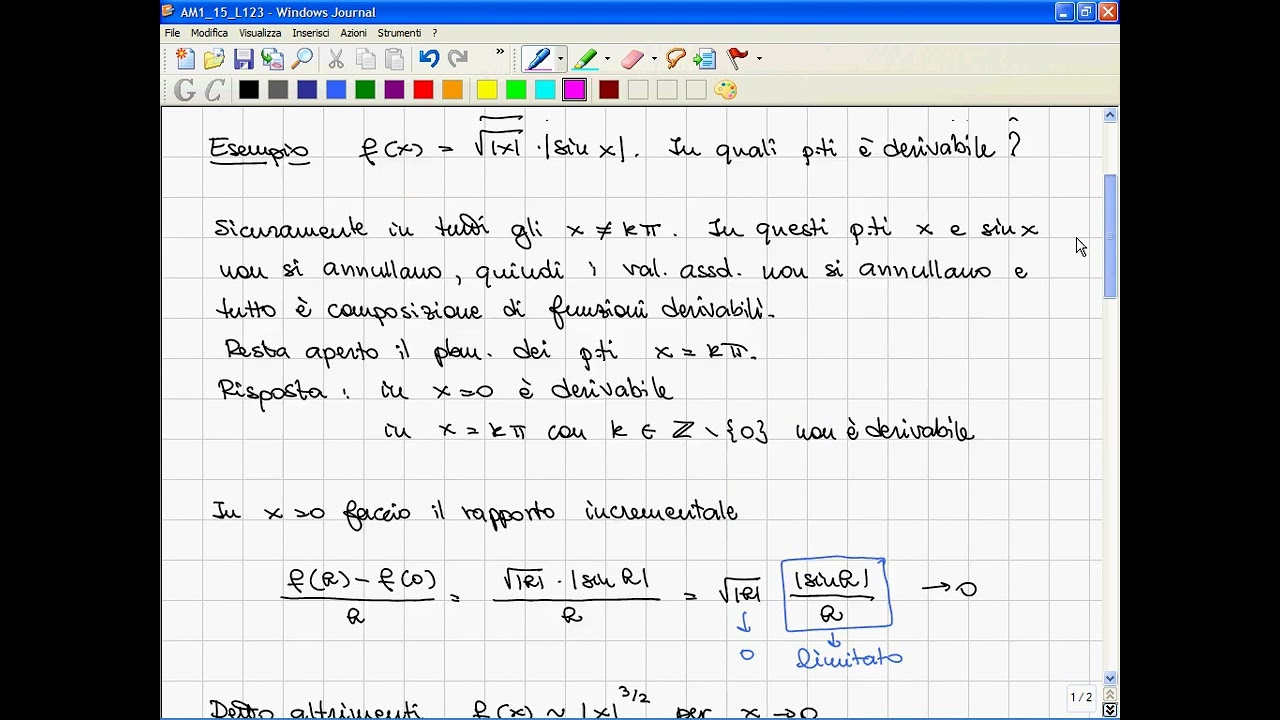 AM1_15_L123 - Windows Journal
File Modifica Visualizza Inserisci Azioni Strumenti ?
Esempio f(x) = √|x| · |sin x|. In quali p.ti è derivabile?
Sicuramente in tutti gli x ≠ kπ. In questi p.ti x e sin x
non si annullano, quindi i val. assol. non si annullano e
tutto è composizione di funzioni derivabili.
Resta aperto il pbm. dei p.ti x = kπ.
Risposta: in x=0 è derivabile
in x = kπ con k ∈ ℤ \ {0} non è derivabile
In x=0 faccio il rapporto incrementale
(f(h) - f(0))/h = (√|h| · |sin h|)/h = √|h| |sin h|/h → 0
↓ ↓
0 limitato
Detto altrimenti f(x) ~ |x|^3/2 per x → 0
1 / 2